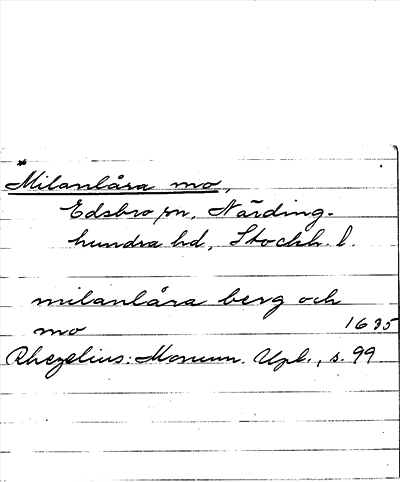 *
Milanlåsa mo,
Edsbro sn, Närding-
hundra hd, Stockh. l.
milanlåsa berg och
mo 1635
Rhezelius: Monum. Upl., s. 99.